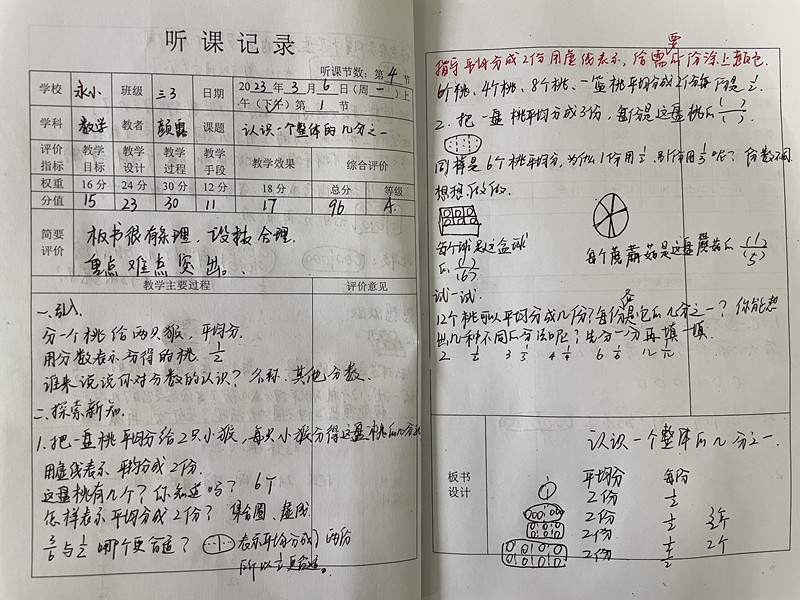 听课记录
听课节数：第 4 节
学校 永小 班级 三3 日期 2023 年 3 月 6 日（周一）上
午（下午）第 1 节
学科 数学 教者 课题 认识一个整体的几分之一
评价指标 教学目标 教学设计 教学过程 教学手段 教学效果 综合评价
权重 16分 24分 30分 12分 18分 总分 等级
分值 15 23 30 11 17 96 A.
简要评价 板书很有条理，设技合理.
重点难点突出。
教学主要过程 评价意见
一、引入.
分一个桃给两只猴，平均分.
用分数表示分得的桃. 1/2
谁来说说你对分数的认识？名称、其他分数.
二、探索新知.
1. 把一盘桃平均分给2只小猴，每只小猴分得这盘桃的几分之
用虚线表示平均分成2份.
这盘桃有几个？你知道吗？ 6个
怎样表示平均分成2份？ 集合圈、虚线
3/6与1/2哪个更合适？ 表示平均分成了两份
所以1/2更合适。
指导平均分成2份用虚线表示，给需要的份涂上颜色.
6个桃、4个桃、8个桃、一筐桃平均分成2份每份是1/2.
2. 把一盘桃平均分成3份，每份是这盘桃的( )/( )
同样是6个桃平均分，为什么1份用1/2，别份用1/3呢？份数不同
想想做做.
每个球是这盒球
的(1)/(6)
每个蘑菇是这盘蘑菇的(1)/(5)
试一试.
12个桃可以平均分成几份？每份是它的几分之一？你能想
出几种不同的分法呢？先分一分再填一填.
2 1/2 3 1/3 4 1/4 6 1/6 12 1/12
板书设计
认识一个整体的几分之一.
平均分 每份
2份 1/2
2份 1/2 3个
2份 2个
2份 1/2